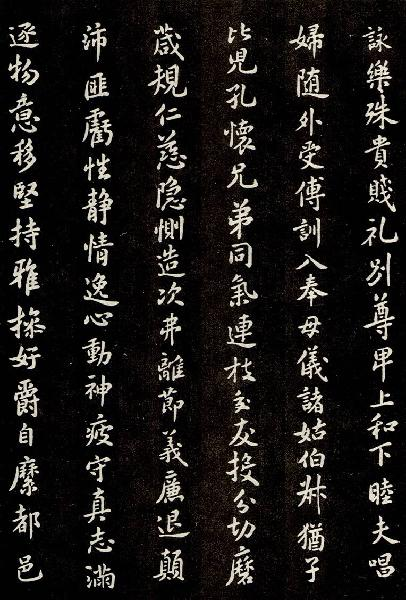 詠樂殊貴賤礼別尊卑上和下睦夫唱
婦随外受傅訓入奉母儀諸姑伯叔猶子
比兒孔懷兄弟同氣連枝交友投分切磨
箴規仁慈隐惻造次弗離節義廉退顛
沛匪虧性静情逸心動神疲守真志滿
逐物意移堅持雅操好爵自縻都邑